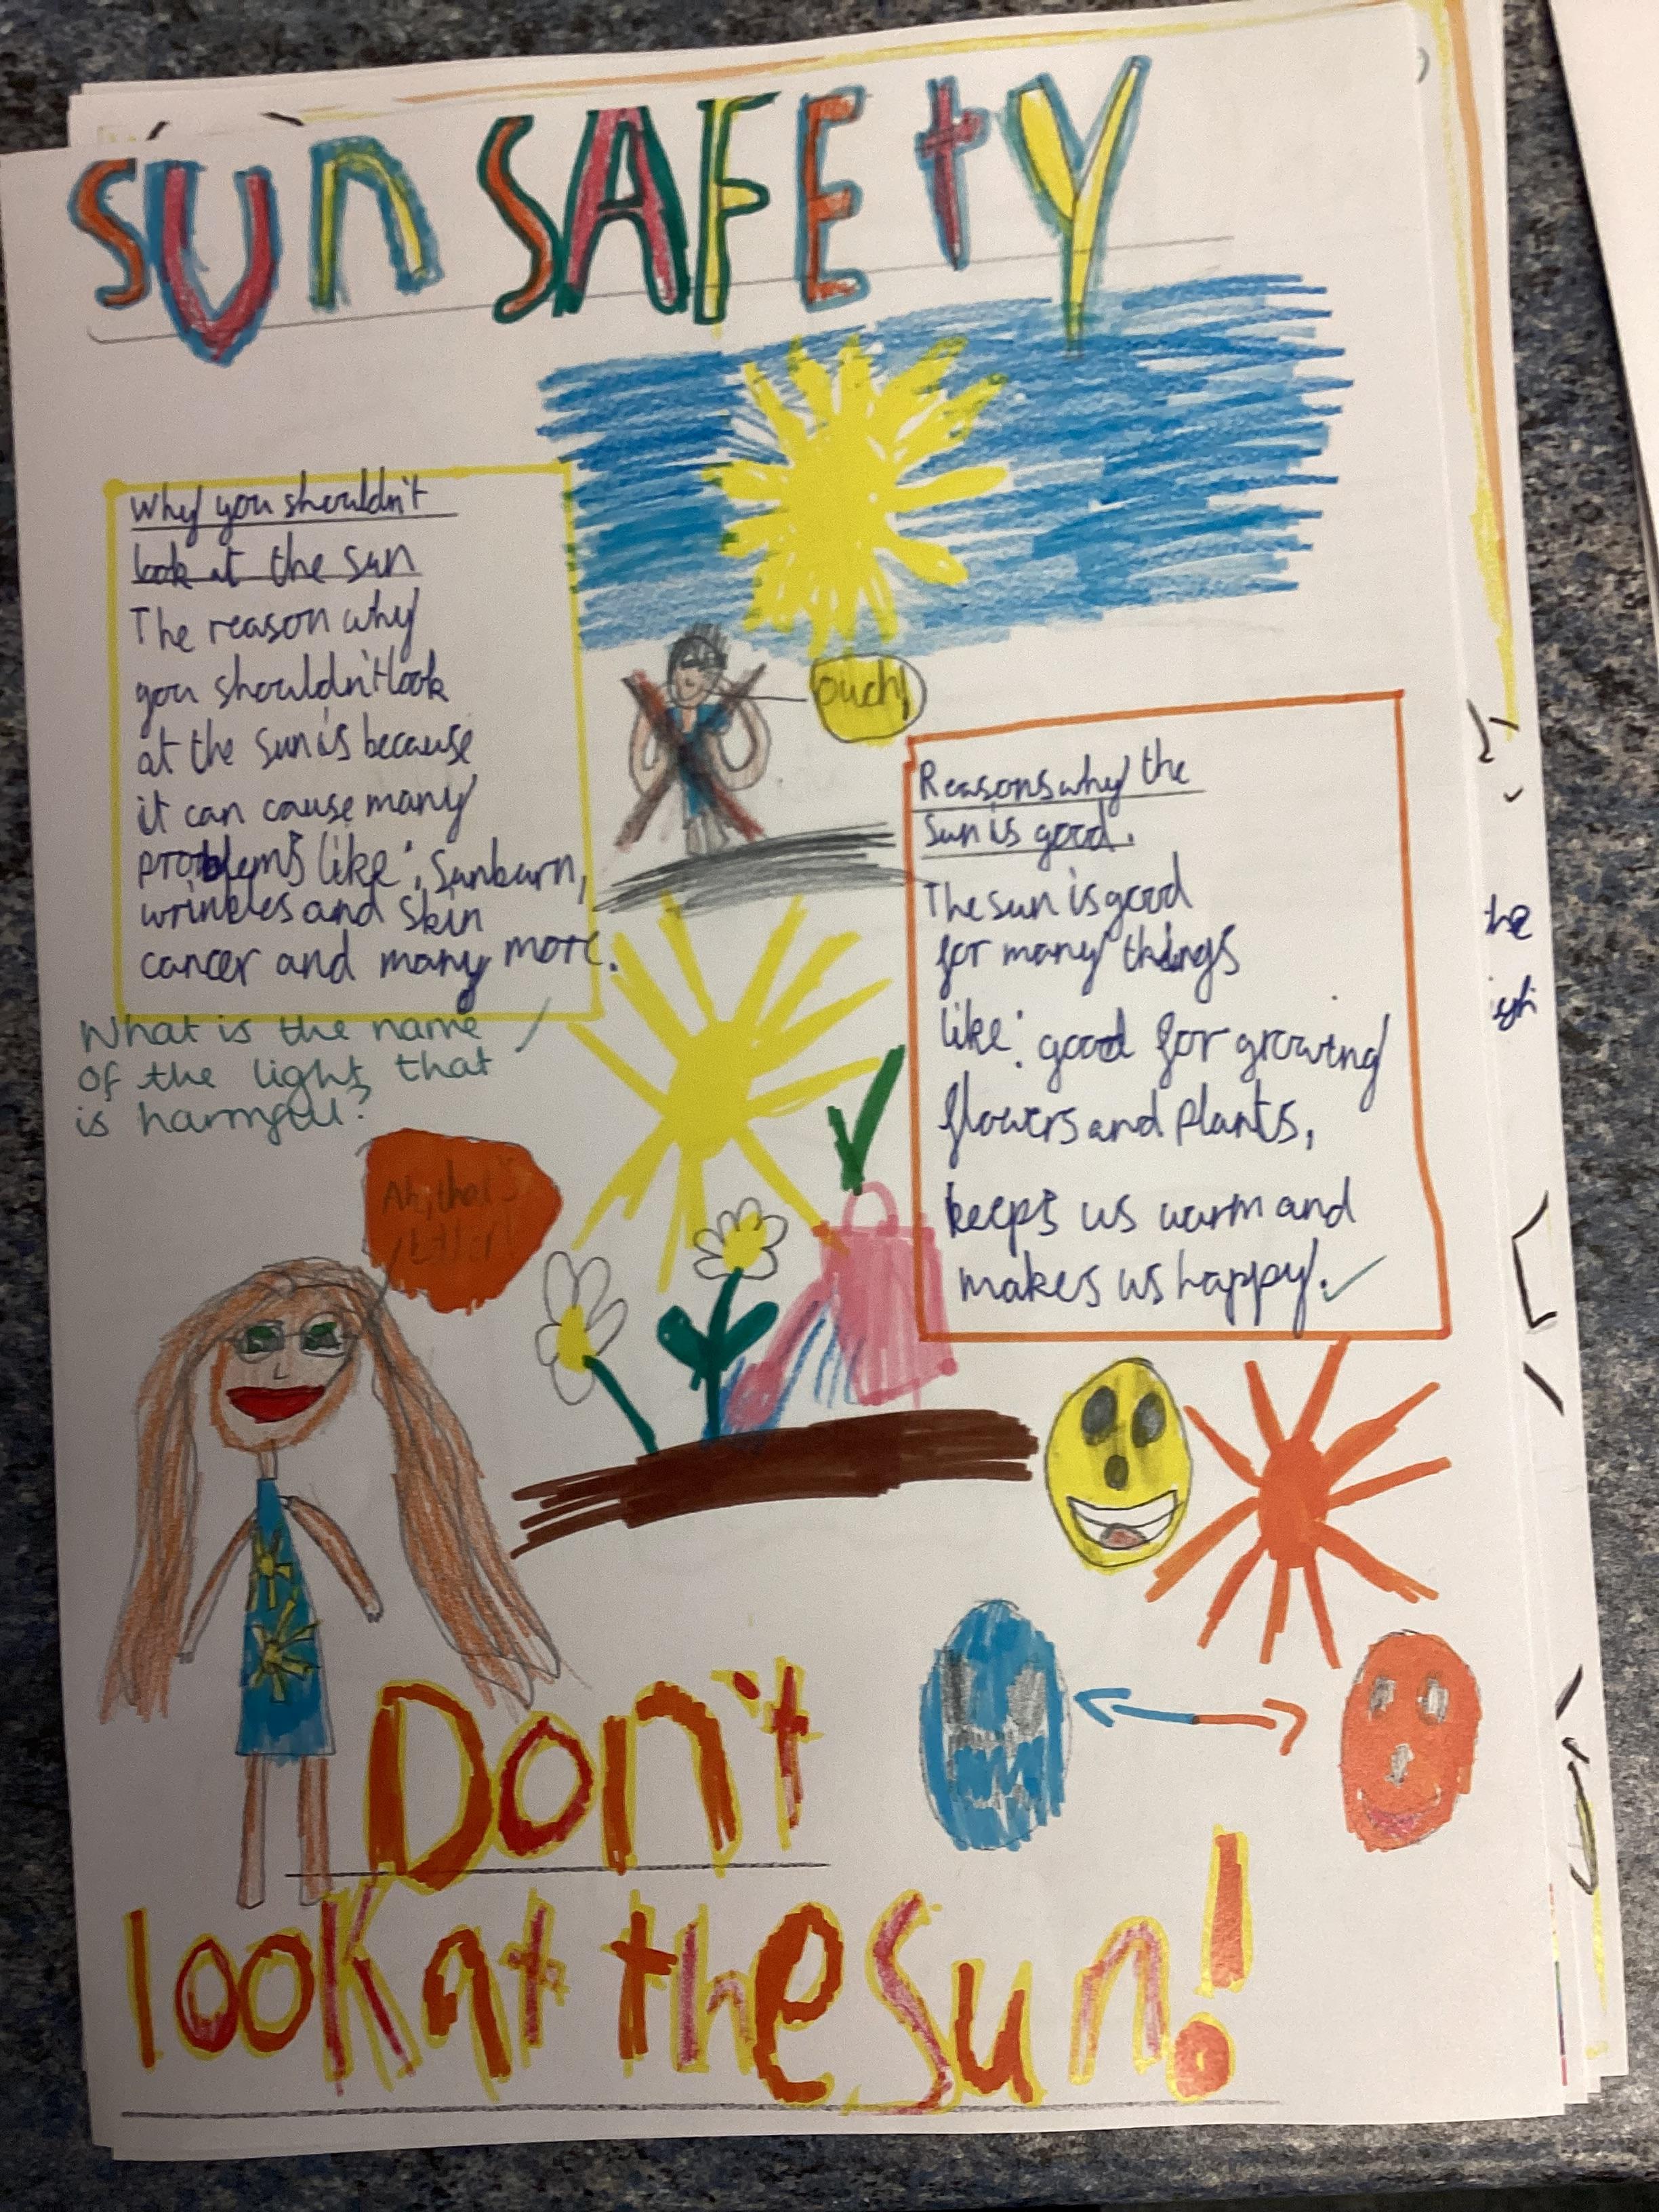 SUn SAFEtY
Why you shouldn't
look at the sun
The reason why
you shouldn't look
at the sun is because
it can cause many
problems like: Sunburn,
wrinkles and skin
cancer and many more.
What is the name
of the light that
is harmful?
Ouch!
Reasons why the
Sun is good.
The sun is good
for many things
like: good for growing
flowers and plants,
keeps us warm and
makes us happy.
Ah, that's
better!
Don't
look at the Sun!
he